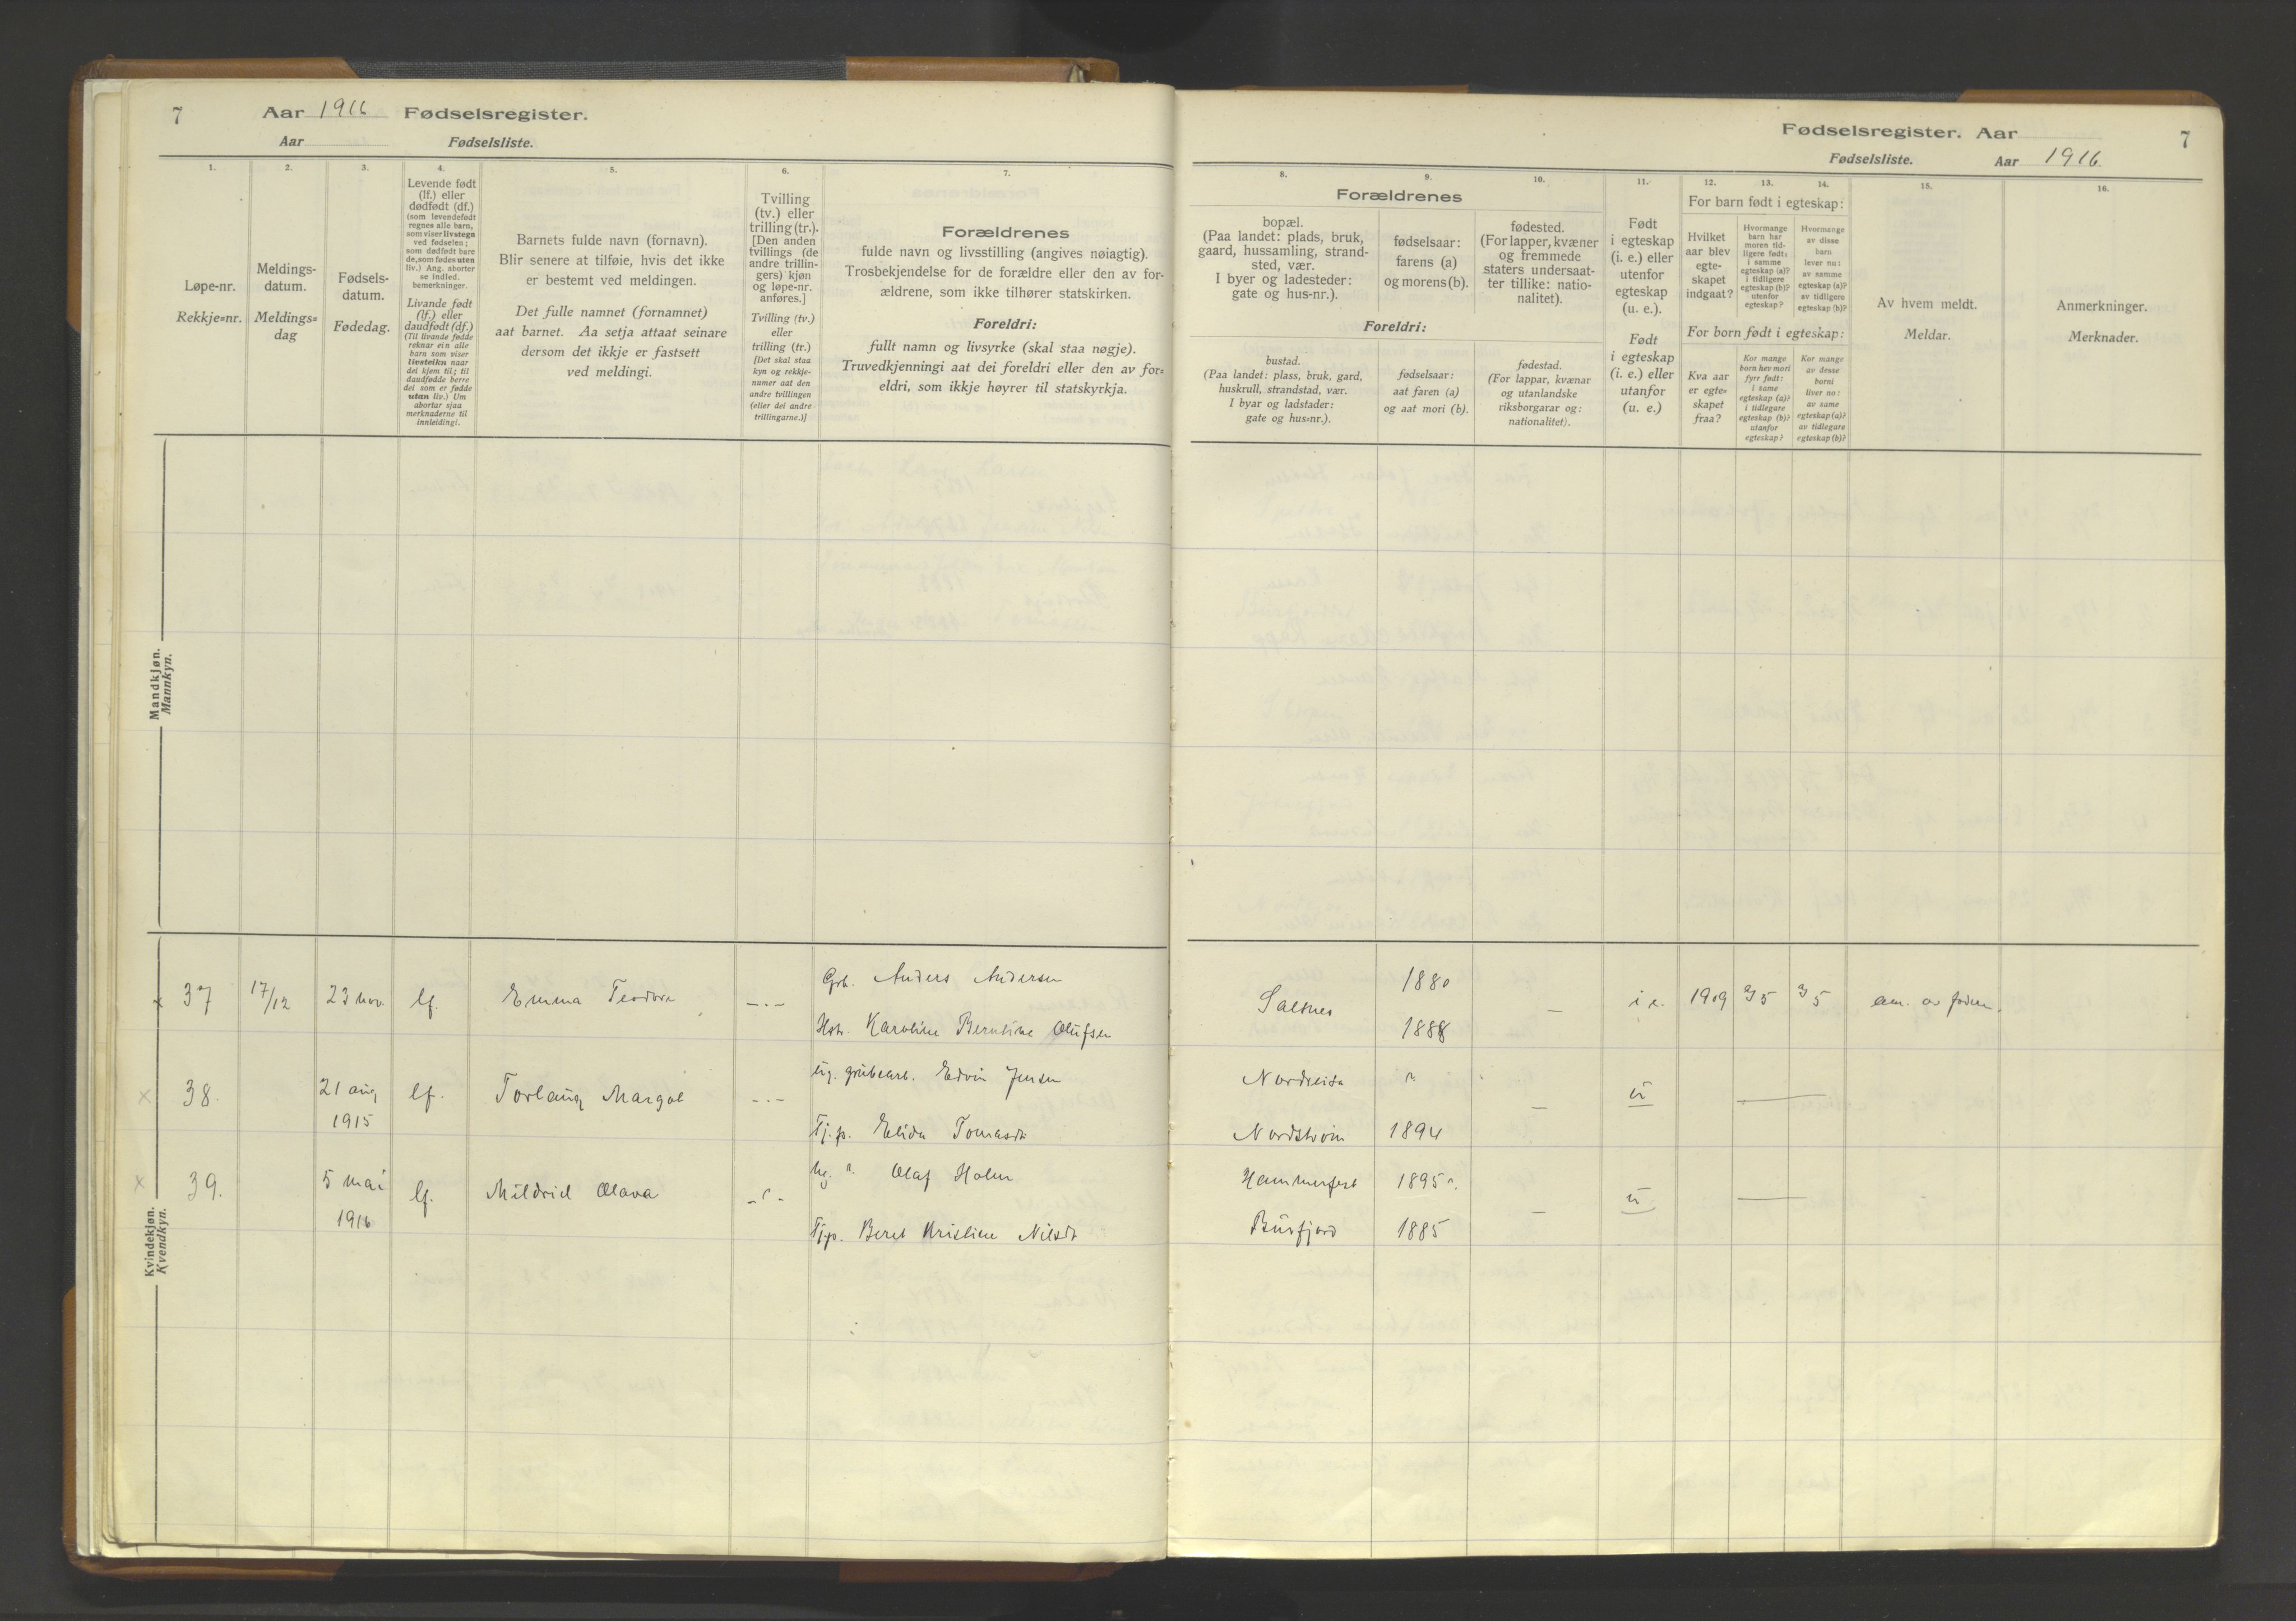 7 Aar 1916 Fødselsregister.
Aar Fødselsliste.
1.
Løpe-nr.
Rekkje=nr.
2.
Meldings-
datum.
Meldings=
dag
3.
Fødsels-
datum.
Fødedag.
4.
Levende født
(lf.) eller
dødfødt (df.)
(som levendefødt
regnes alle barn,
som viser livstegn
ved fødselen;
som dødfødt bare
de, som fødes uten
liv.) Ang. aborter
se indled.
bemerkninger.
Livande født
(lf.) eller
daudfødt (df.)
(Til livande fødde
reknar ein alle
barn som viser
livsteikn naar
dei kjem til; til
daudfødde berre
dei som er fødde
utan liv.) Um
abortar sjaa
merknaderne til
innleidingi.
5.
Barnets fulde navn (fornavn).
Blir senere at tilføie, hvis det ikke
er bestemt ved meldingen.
Det fulle namnet (fornamnet)
aat barnet. Aa setja attaat seinare
dersom det ikkje er fastsett
ved meldingi.
6.
Tvilling
(tv.) eller
trilling (tr.).
[Den anden
tvillings (de
andre trillin-
gers) kjøn
og løpe-nr.
anføres.]
Tvilling (tv.)
eller
trilling (tr.)
[Det skal staa
kyn og rekkje-
numer aat den
andre tvillingen
(eller dei andre
trillingarne.)]
7.
Forældrenes
fulde navn og livsstilling (angives nøiagtig).
Trosbekjendelse for de forældre eller den av for-
ældrene, som ikke tilhører statskirken.
Foreldri:
fullt namn og livsyrke (skal staa nøgje).
Truvedkjenningi aat dei foreldri eller den av for=
eldri, som ikkje høyrer til statskyrkja.
Mandkjøn.
Mannkyn.
Kvindekjøn.
Kvendkyn.
x 37 17/12 23 nov. lf. Emma Teodora -.- Grb. Anders Andersen
Hstr. Karoline Berntine Olufsen
x 38. 21 aug lf. Torlaug Margot -.- ug. grubearb. Edvin Jensen
1915
Tj.p. Elida Tomasdt
x 39. 5 mai lf. Mildrid Olava ug. " Olaf Holm
1916
Tjp. Beret Kristine Nilsdt
Fødselsregister. Aar 7
Fødselsliste. Aar 1916
8. 9. 10.
Forældrenes
bopæl.
(Paa landet: plads, bruk,
gaard, hussamling, strand-
sted, vær.
I byer og ladesteder:
gate og hus-nr.).
fødselsaar:
farens (a)
og morens (b).
fødested.
(For lapper, kvæner
og fremmede
staters undersaat-
ter tillike: natio-
nalitet).
Foreldri:
bustad.
(Paa landet: plass, bruk, gard,
huskrull, strandstad, vær.
I byar og ladstader:
gate og hus=nr.).
fødselsaar:
aat faren (a)
og aat mori (b).
fødestad.
(For lappar, kvænar
og utanlandske
riksborgarar og:
nationalitet).
11.
Født
i egteskap
(i. e.) eller
utenfor
egteskap
(u. e.).
Født
i egteskap
(i. e.) eller
utanfor
(u. e.)
12. 13. 14.
For barn født i egteskap:
Hvilket
aar blev
egte-
skapet
indgaat?
Hvormange
barn har
moren tid-
ligere født:
i samme
egteskap (a)?
i tidligere
egteskap (b)?
utenfor
egteskap?
Hvormange
av disse
barn
lever nu:
av samme
egteskap (a)?
av tidligere
egteskap (b)?
For born født i egteskap:
Kva aar
er egte=
skapet
fraa?
Kor mange
born hev mori
fyrr født:
i same
egteskap (a)?
i tidlegare
egteskap (b)?
utanfor
egteskap?
Kor mange
av desse
borni
liver no:
av same
egteskap (a)?
av tidlegare
egteskap (b)?
15.
Av hvem meldt.
Meldar.
16.
Anmerkninger.
Merknader.
1880
Salsnes — i e. 1909 a/5 a/5 am. av faden.
1888
Nordreisa
— u ——
Nordstrøm 1894
Hammerfest 1895
— u ——
Burfjord 1885